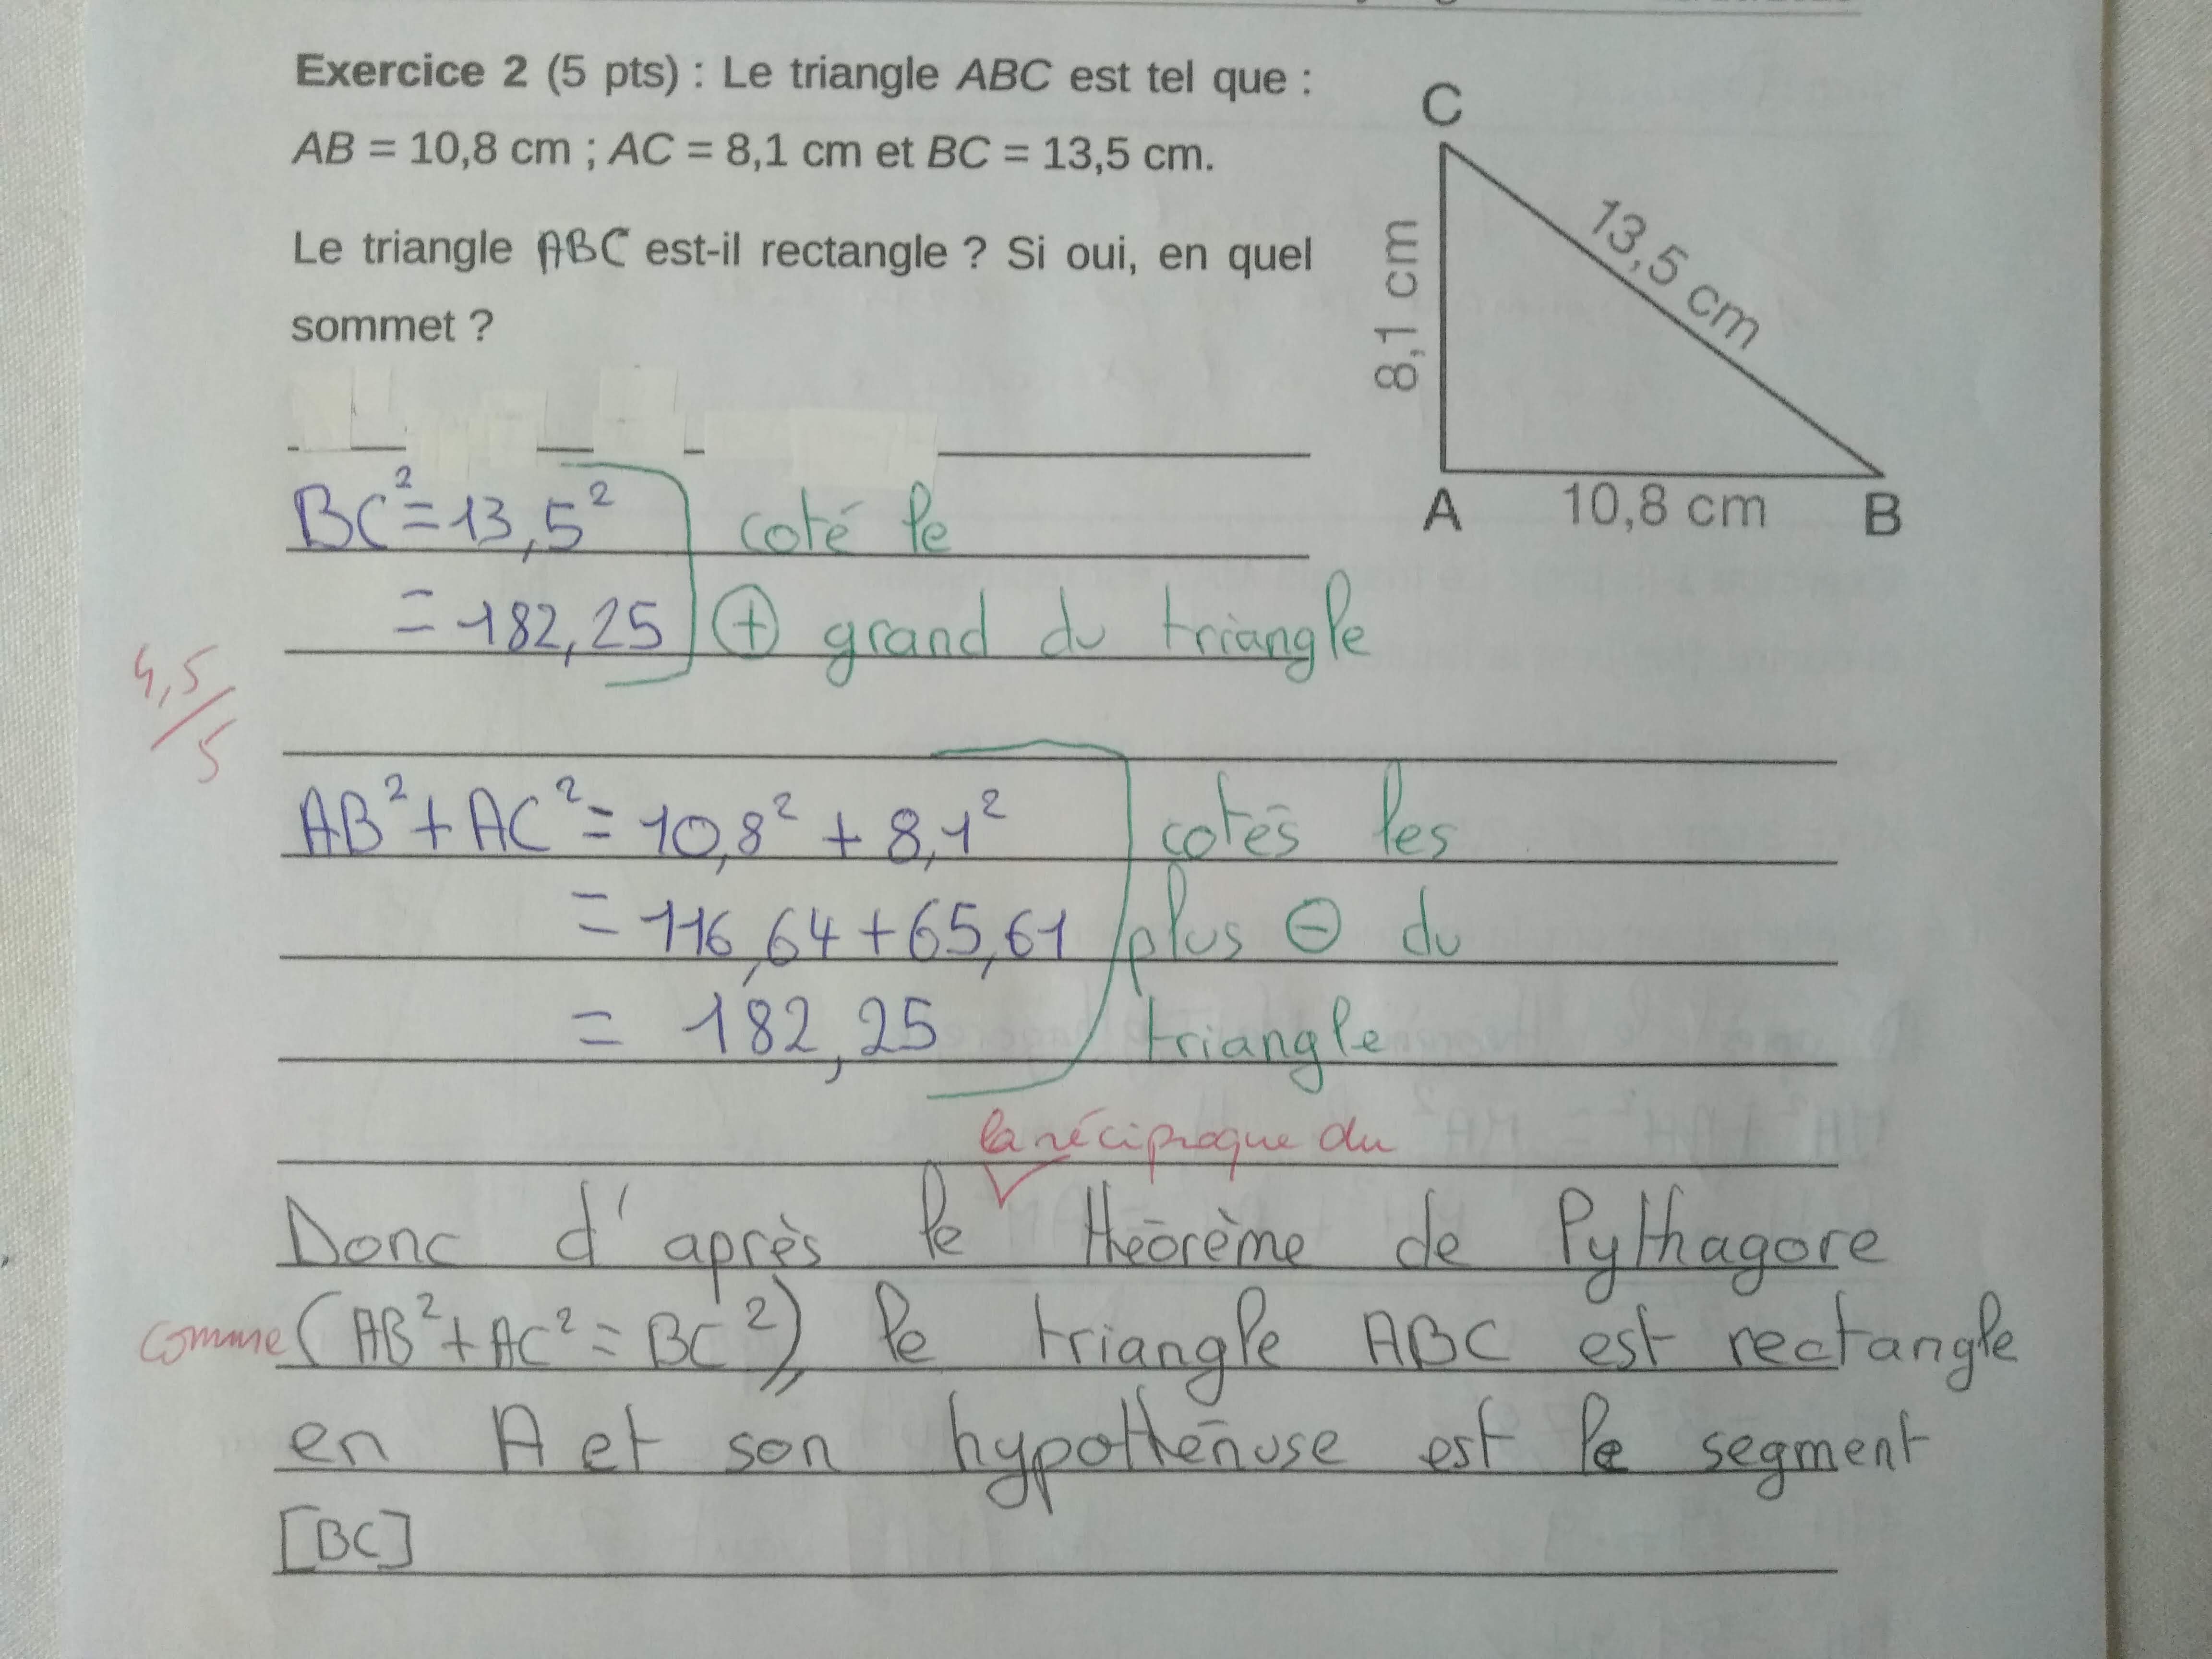 Exercice 2 (5 pts) : Le triangle ABC est tel que :
AB = 10,8 cm ; AC = 8,1 cm et BC = 13,5 cm.
Le triangle ABC est-il rectangle ? Si oui, en quel
sommet ?
C
8,1 cm
13,5 cm
A 10,8 cm B
BC² = 13,5² coté le
= 182,25 ⊕ grand du triangle
4,5/5
AB² + AC² = 10,8² + 8,1² cotés les
= 116,64 + 65,61 plus ⊖ du
= 182,25 triangle
la réciproque du
Donc d'après le théorème de Pythagore
comme (AB² + AC² = BC²), le triangle ABC est rectangle
en A et son hypothénuse est le segment
[BC]